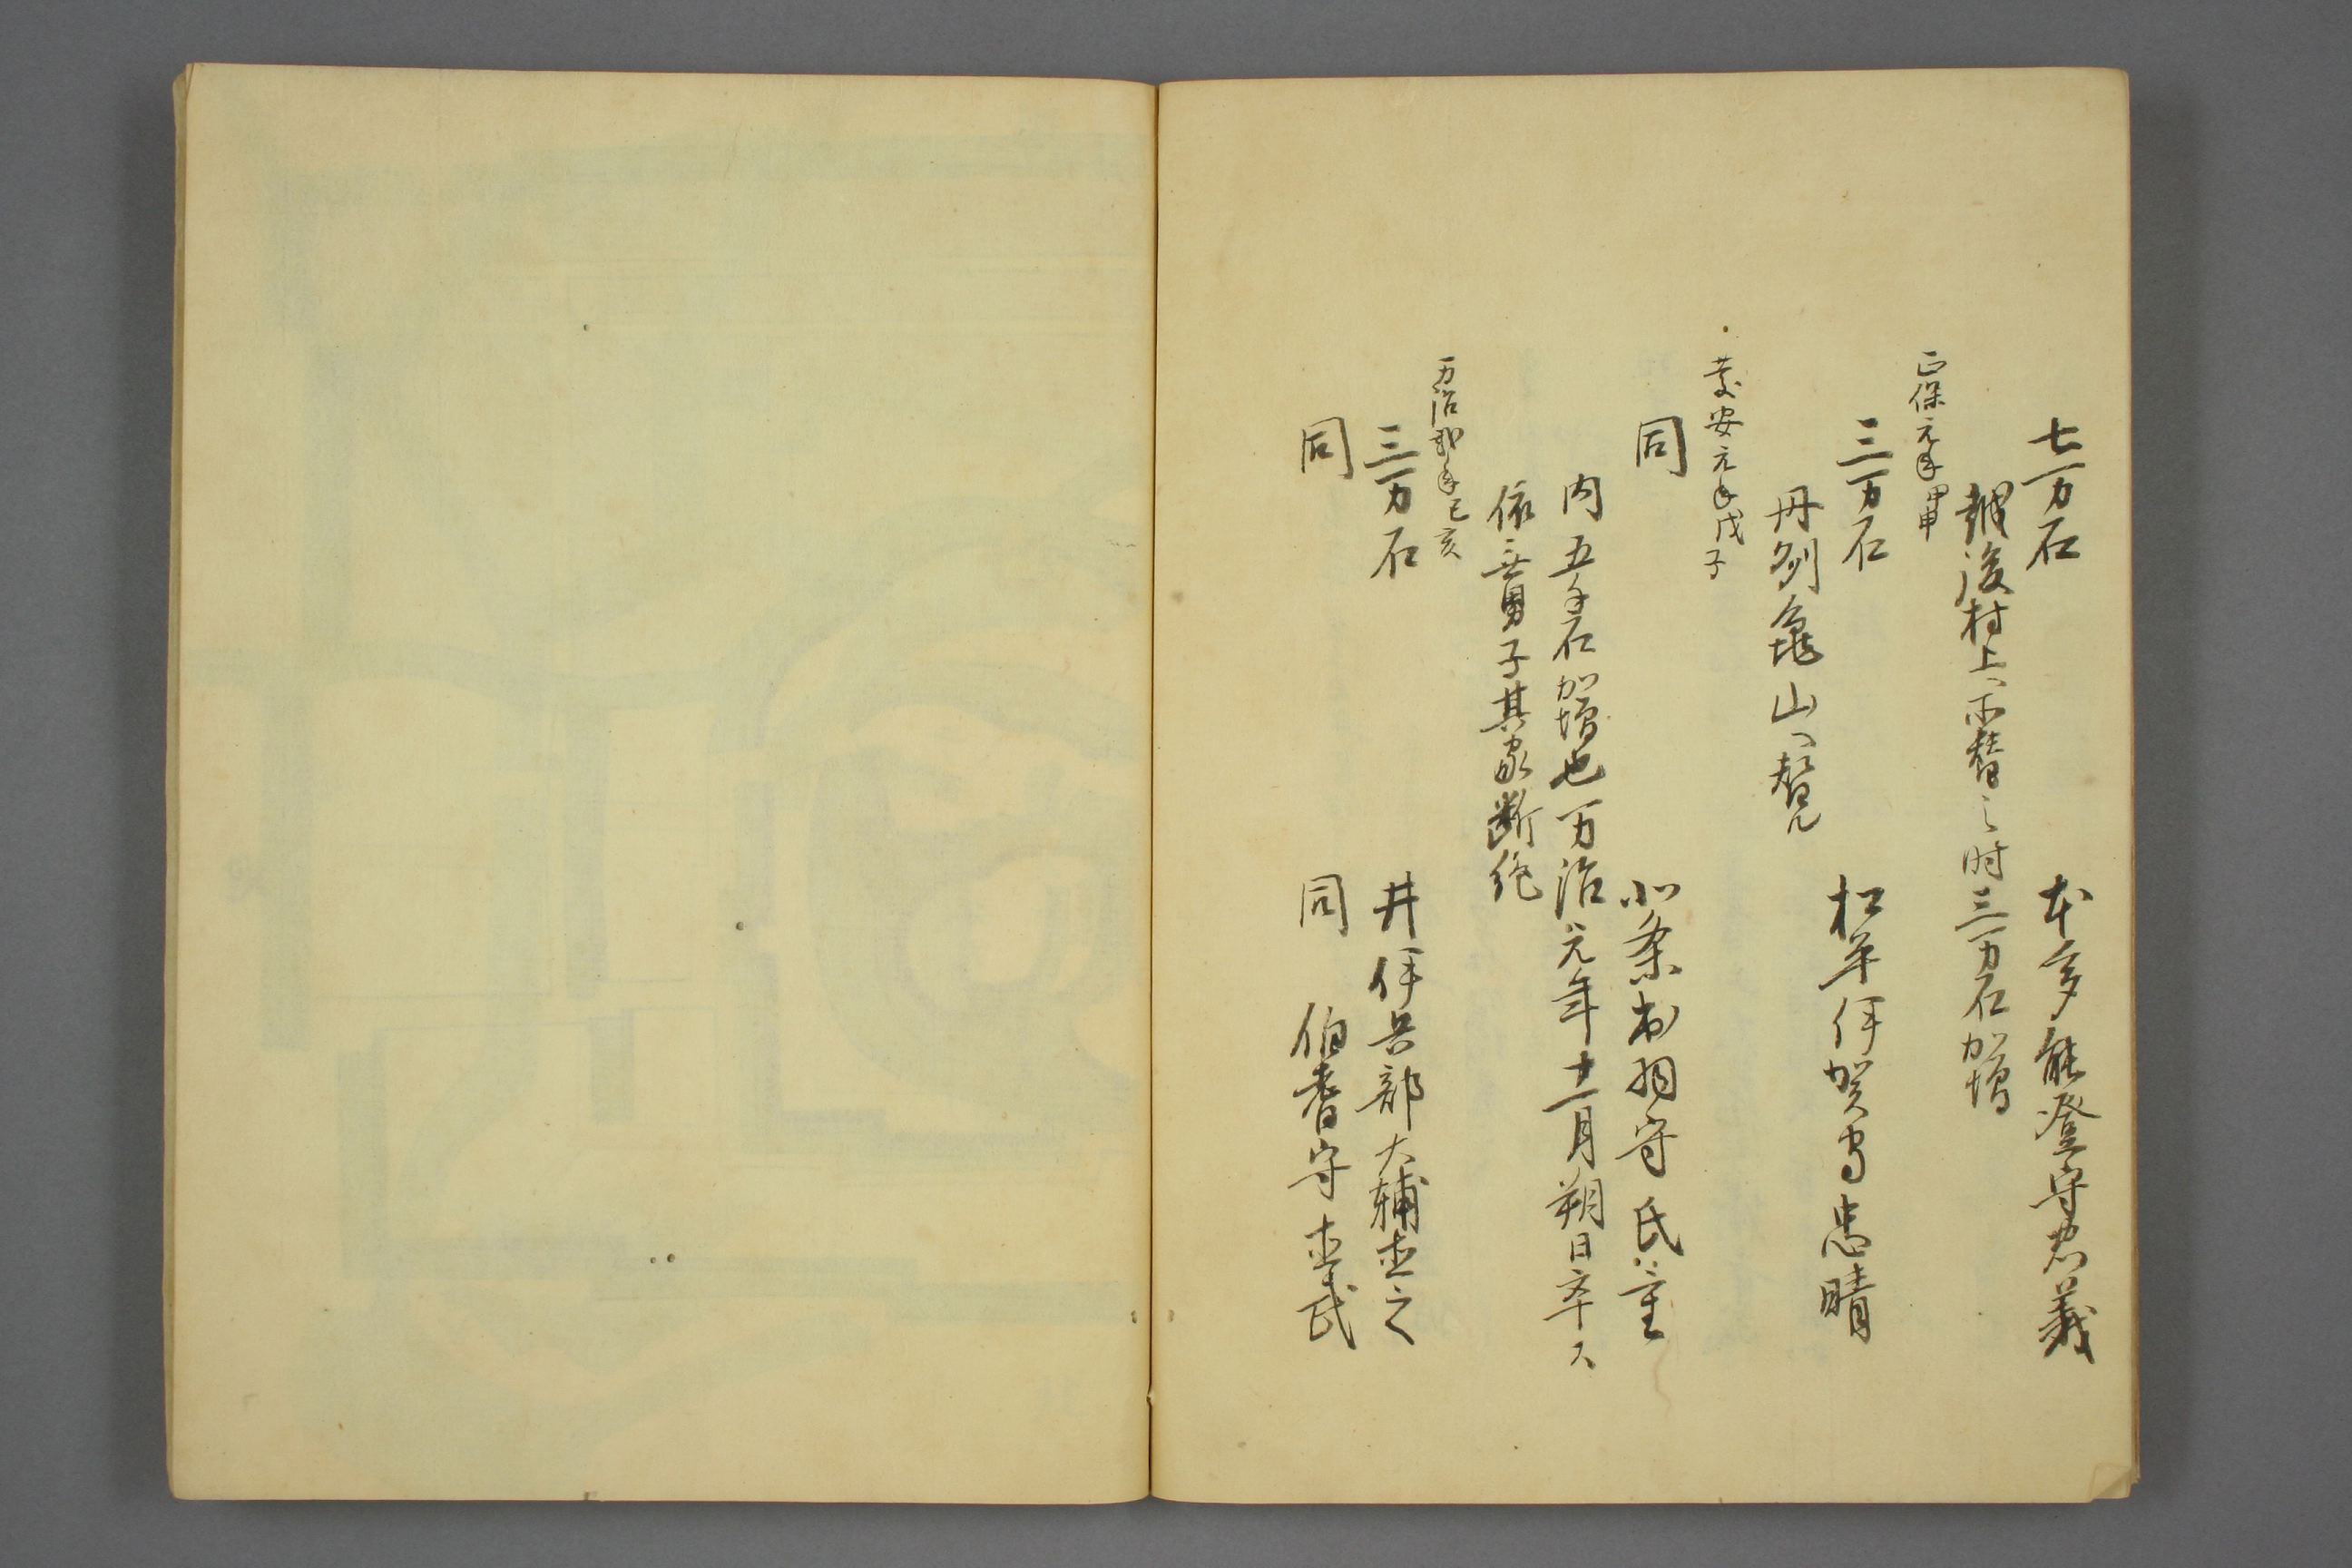 七万石　本多能登守忠義
越後村上ヘ所替之時三万石加増
正保元年甲申
三万石　松平伊賀守忠晴
丹州亀山ヘ替ル
慶安元年戊子
同　北条出羽守氏重
内五千石加増也万治元年十一月朔日卒ス
依無男子其家断絶
万治二年己亥
三万石　井伊兵部大輔直之
同　同　伯耆守直武